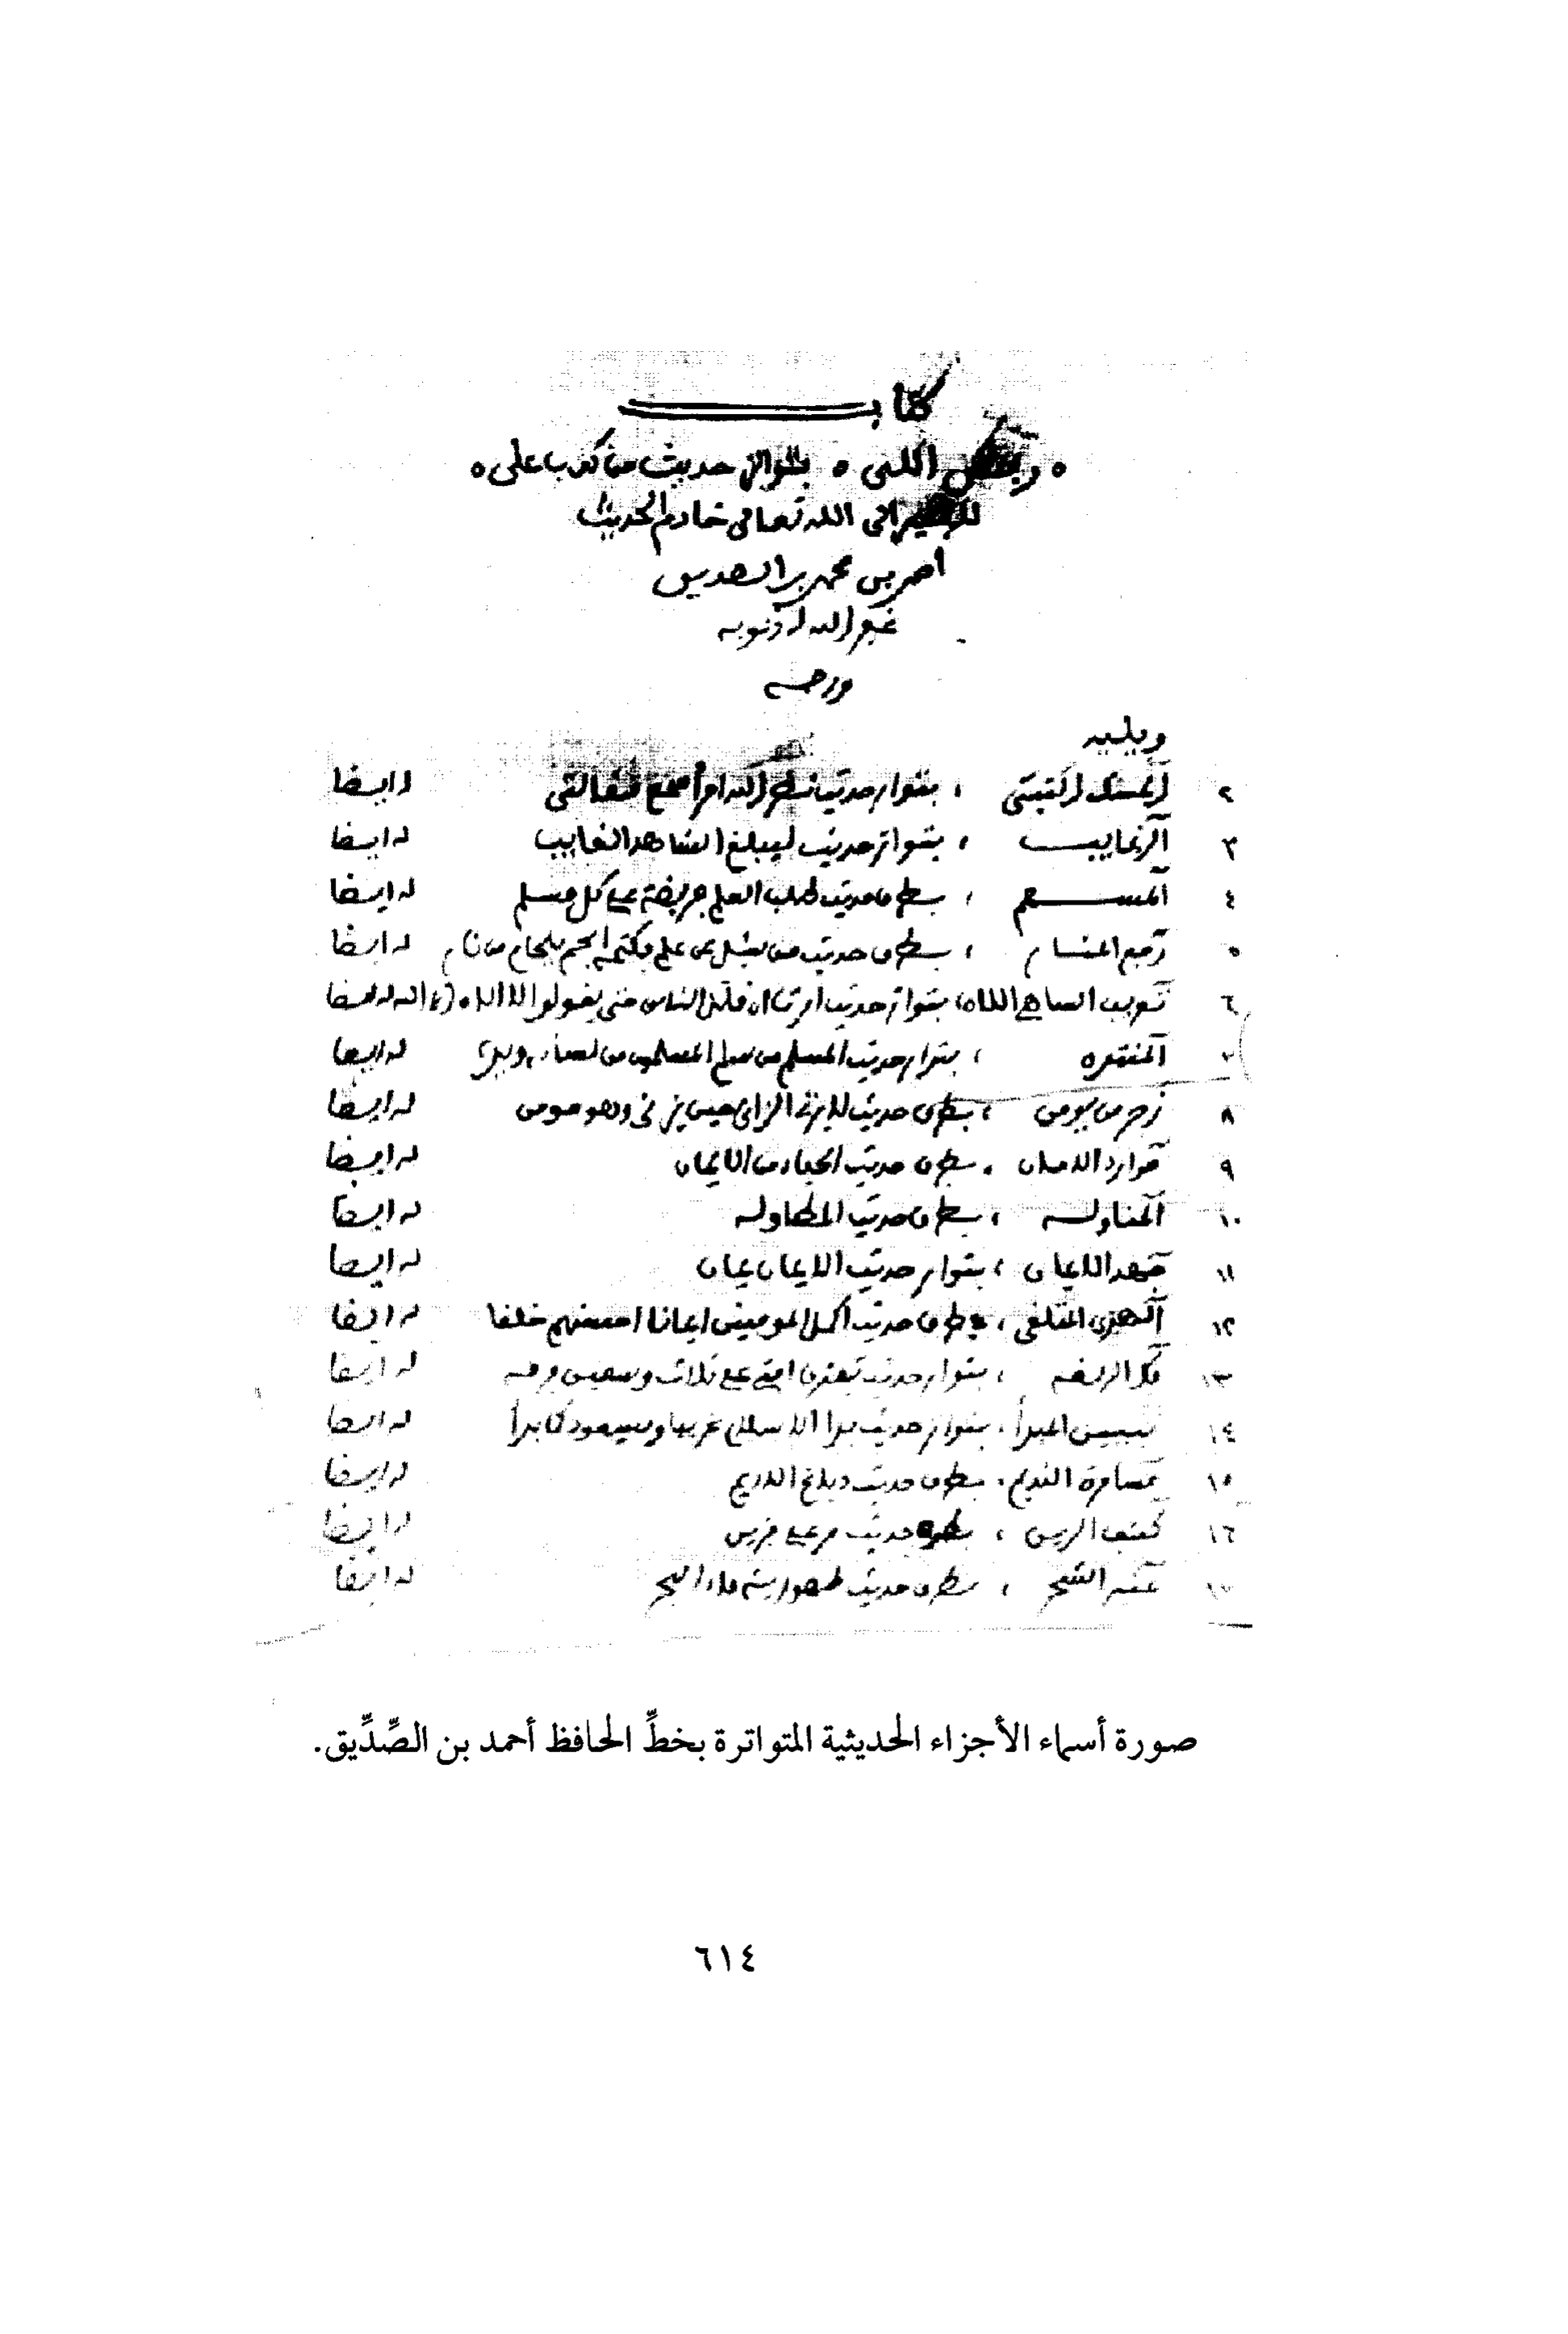 كتاب
رفض اللي ه بتواتر حديث من كذب علي ه
للفقير الى الله تعالى خادم الحديث
احمد بن محمد بن الصديق
غفر الله له ذنوبه
ورحمه
ويليه
٢ المسك التبتي ، بتواتر حديث نضر الله امرأ سمع مقالتي له ايضا
٣ الرغايب ، بتواتر حديث ليبلغ الشاهد الغايب له ايضا
٤ المسهم ، بطرق حديث طلب العلم فريضة على كل مسلم له ايضا
٥ رفع المنار ، بطرق حديث من سئل عن علم فكتمه الجم بلجام من نار له ايضا
٦ بتواتر حديث امرت ان اقاتل الناس حتى يقولوا لا اله الا الله له ايضا
٧ ، بتواتر حديث المسلم من سلم المسلمون من لسانه ويده له ايضا
٨ زجر من يومن ، بطرق حديث لا يزني الزاني حين يزني وهو مومن له ايضا
٩ موارد الامان ، بطرق حديث الحياء من الايمان له ايضا
١٠ المناولـه ، بطرق حديث المطاوله له ايضا
١١ شهد الايمان ، بتواتر حديث الايمان يمان له ايضا
١٢ الهدي المتلقى ، بطرق حديث اكمل المومنين ايمانا احسنهم خلقا له ايضا
١٣ ، بتواتر حديث تفترق امتي على ثلاث وسبعين فرقه له ايضا
١٤ تبيين المبدأ ، بتواتر حديث بدا الاسلام غريبا وسيعود كما بدأ له ايضا
١٥ مسامرة النديم ، بطرق حديث دباغ الاديم له ايضا
١٦ كشف الرين ، بطرق حديث مر على قبرين له ايضا
١٧ ، بطرق حديث طهورية ماء البحر له ايضا
صورة أسماء الأجزاء الحديثية المتواترة بخطِّ الحافظ أحمد بن الصِّدِّيق.
٦١٤